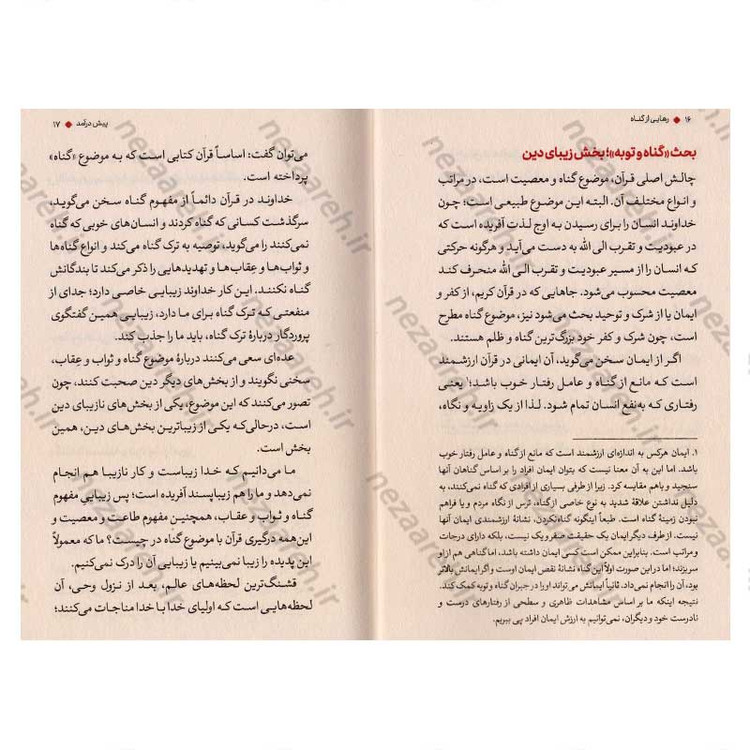 ۱۶ ◆ رهایی از گناه
بحث «گناه و توبه»؛ بخش زیبای دین
چالش اصلی قرآن، موضوع گناه و معصیت است، در مراتب
و انواع مختلف آن. البته این موضوع طبیعی است؛ چون
خداوند انسان را برای رسیدن به اوج لذت آفریده است که
در عبودیت و تقرب الی الله به دست می‌آید و هرگونه حرکتی
که انسان را از مسیر عبودیت و تقرب الی الله منحرف کند
معصیت محسوب می‌شود. جاهایی که در قرآن کریم، از کفر و
ایمان یا از شرک و توحید بحث می‌شود نیز، موضوع گناه مطرح
است، چون شرک و کفر خود بزرگ‌ترین گناه و ظلم هستند.
اگر از ایمان سخن می‌گوید، آن ایمانی در قرآن ارزشمند
است که مانع از گناه و عامل رفتار خوب باشد؛۱ یعنی
رفتاری که به‌نفع انسان تمام شود. لذا از یک زاویه و نگاه،
۱. ایمان هرکس به اندازه‌ای ارزشمند است که مانع از گناه و عامل رفتار خوب
باشد. اما این به آن معنا نیست که بتوان ایمان افراد را بر اساس گناهان آنها
سنجید و باهم مقایسه کرد. زیرا از طرفی بسیاری از افرادی که گناه نمی‌کنند، به
دلیل نداشتن علاقهٔ شدید به نوع خاصی از گناه، ترس از نگاه مردم و یا فراهم
نبودن زمینهٔ گناه است. طبعاً اینگونه گناه‌نکردن، نشانهٔ ارزشمندی ایمان آنها
نیست. از طرف دیگر ایمان یک حقیقت صفر و یک نیست، بلکه دارای درجات
و مراتب است. بنابراین ممکن است کسی ایمان داشته باشد، اما گناهی هم از او
سر بزند؛ اما در این صورت اولاً این گناه نشانهٔ نقص ایمان اوست و اگر ایمانش بالاتر
بود، آن را انجام نمی‌داد. ثانیاً ایمانش می‌تواند او را در جبران گناه و توبه کمک کند.
نتیجه اینکه ما بر اساس مشاهدات ظاهری و سطحی از رفتارهای درست و
نادرست خود و دیگران، نمی‌توانیم به ارزش ایمان افراد پی ببریم.
پیش درآمد ◆ ۱۷
می‌توان گفت: اساساً قرآن کتابی است که به موضوع «گناه»
پرداخته است.
خداوند در قرآن دائماً از مفهوم گناه سخن می‌گوید،
سرگذشت کسانی که گناه کردند و انسان‌های خوبی که گناه
نمی‌کنند را می‌گوید، توصیه به ترک گناه می‌کند و انواع گناه‌ها
و ثواب‌ها و عِقاب‌ها و تهدیدهایی را ذکر می‌کند تا بندگانش
گناه نکنند. این کار خداوند زیبایی خاصی دارد؛ جدای از
منفعتی که ترک گناه برای ما دارد، زیبایی همین گفتگوی
پروردگار دربارهٔ ترک گناه، باید ما را جذب کند.
عده‌ای سعی می‌کنند دربارهٔ موضوع گناه و ثواب و عِقاب،
سخنی نگویند و از بخش‌های دیگر دین صحبت کنند، چون
تصور می‌کنند که این موضوع، یکی از بخش‌های نازیبای دین
است، درحالی‌که یکی از زیباترین بخش‌های دین، همین
بخش است.
ما می‌دانیم که خدا زیباست و کار نازیبا هم انجام
نمی‌دهد و ما را هم زیباپسند آفریده است؛ پس زیباییِ مفهوم
گناه و ثواب و عقاب، همچنین مفهوم طاعت و معصیت و
این‌همه درگیری قرآن با موضوع گناه در چیست؟ ما که معمولاً
این پدیده را زیبا نمی‌بینیم یا زیبایی آن را درک نمی‌کنیم.
قشنگ‌ترین لحظه‌های عالم، بعد از نزول وحی، آن
لحظه‌هایی است که اولیای خدا با خدا مناجات می‌کنند؛
nezaareh.ir
nezaareh.ir
nezaareh.ir
nezaareh.ir
nezaareh.ir
nezaareh.ir